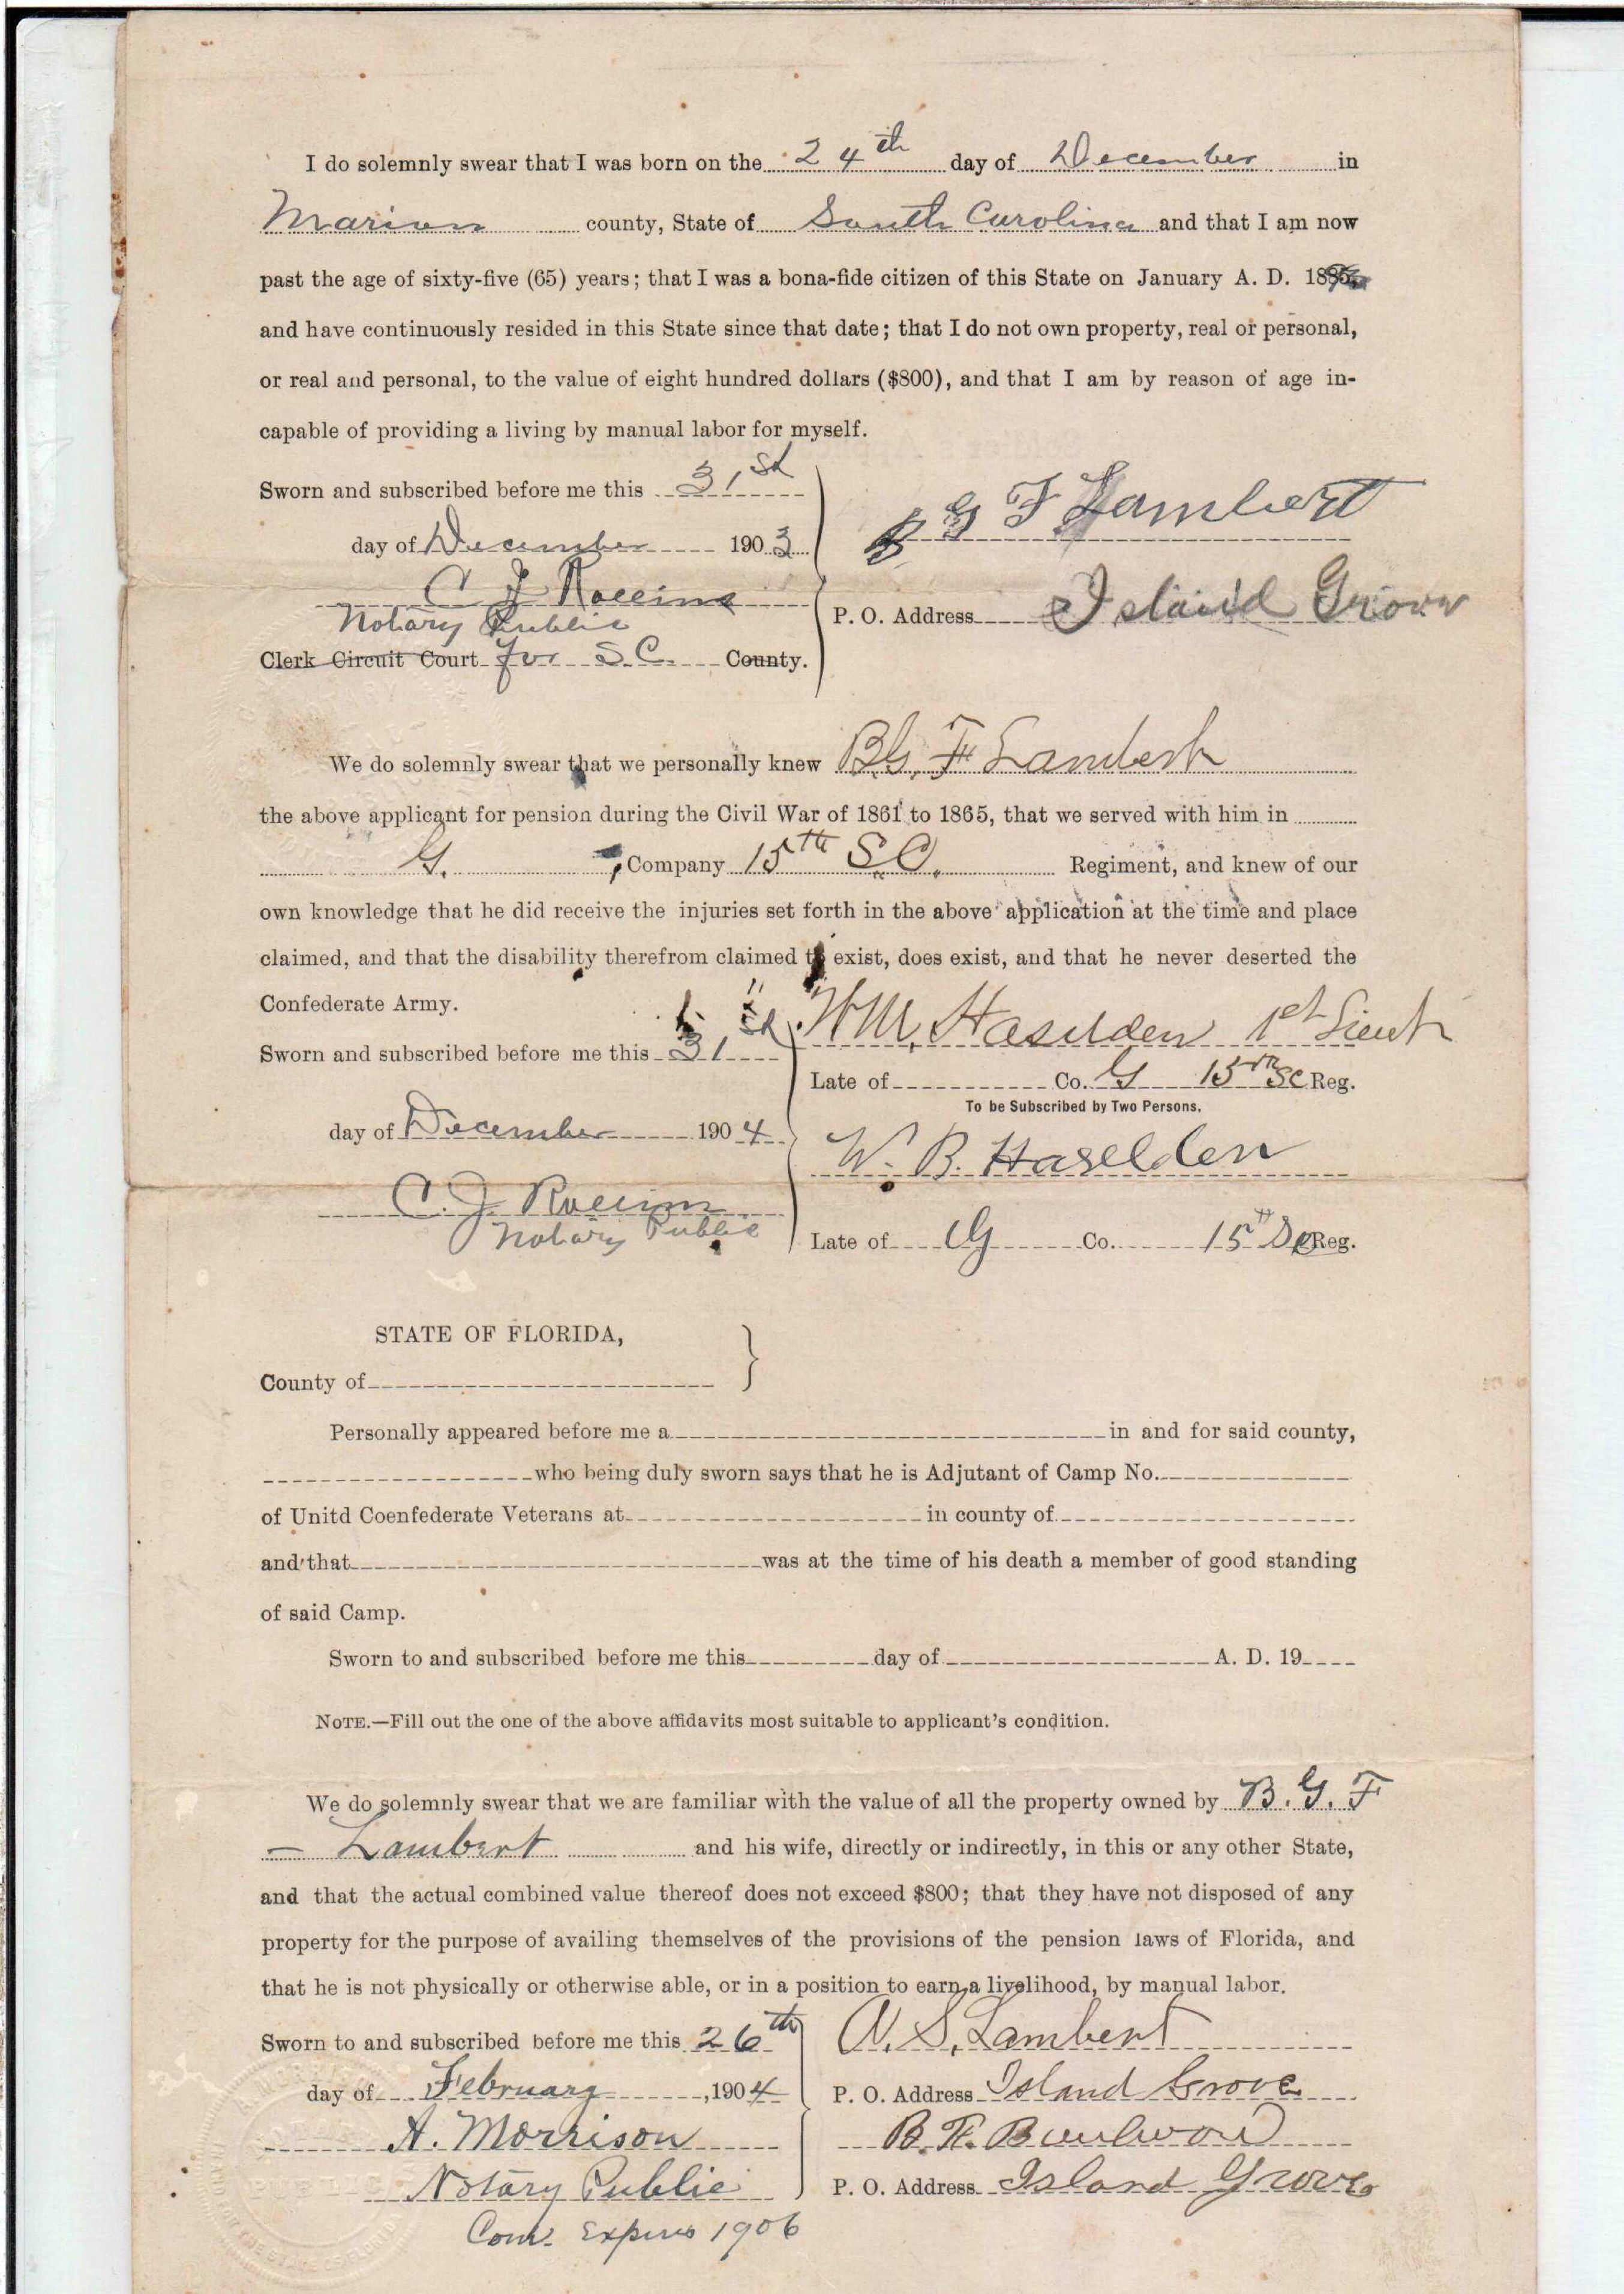 I do solemnly swear that I was born on the 24th day of December in
Marion county, State of South Carolina and that I am now
past the age of sixty-five (65) years; that I was a bona-fide citizen of this State on January A. D. 18
and have continuously resided in this State since that date; that I do not own property, real or personal,
or real and personal, to the value of eight hundred dollars ($800), and that I am by reason of age in-
capable of providing a living by manual labor for myself.
Sworn and subscribed before me this 31st
day of December 1903
B G F Lambert
C J Rollins
Notary Public
P. O. Address Island Grove
Clerk Circuit Court for S.C. County.
We do solemnly swear that we personally knew B.G. F Lambert
the above applicant for pension during the Civil War of 1861 to 1865, that we served with him in
G. , Company 15th S.C. Regiment, and knew of our
own knowledge that he did receive the injuries set forth in the above application at the time and place
claimed, and that the disability therefrom claimed to exist, does exist, and that he never deserted the
Confederate Army.
Sworn and subscribed before me this 31st
Haselden 1st Lieut
Late of Co. G 15th SC Reg.
To be Subscribed by Two Persons.
day of December 1904
W. B. Haselden
C. J. Rollins
Notary Public
Late of G Co. 15th SC Reg.
STATE OF FLORIDA,
County of
Personally appeared before me a in and for said county,
who being duly sworn says that he is Adjutant of Camp No.
of Unitd Coenfederate Veterans at in county of
and that was at the time of his death a member of good standing
of said Camp.
Sworn to and subscribed before me this day of A. D. 19
NOTE.—Fill out the one of the above affidavits most suitable to applicant's condition.
We do solemnly swear that we are familiar with the value of all the property owned by B. G. F
— Lambert and his wife, directly or indirectly, in this or any other State,
and that the actual combined value thereof does not exceed $800; that they have not disposed of any
property for the purpose of availing themselves of the provisions of the pension laws of Florida, and
that he is not physically or otherwise able, or in a position to earn a livelihood, by manual labor.
Sworn to and subscribed before me this 26th
day of February, 1904
S. Lambert
P. O. Address Island Grove
A. Morrison
B. F.
Notary Public
P. O. Address Island Grove
Com. Expires 1906